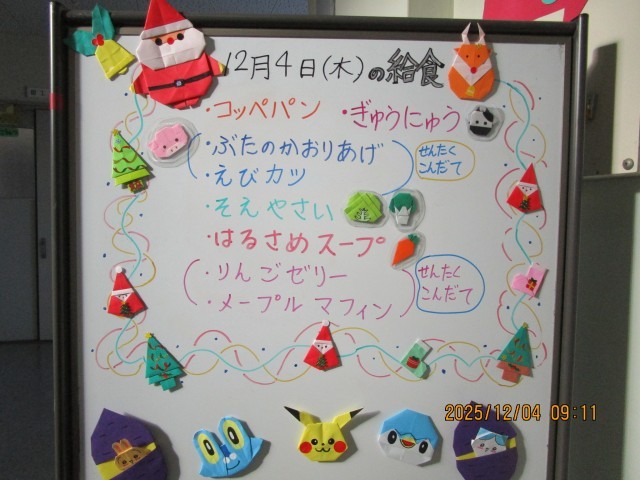 12月4日(木)の給食
・コッペパン ・ぎゅうにゅう
・ぶたのかおりあげ
・えびカツ
せんたく
こんだて
・そえやさい
・はるさめスープ
・りんごゼリー
・メープルマフィン
せんたく
こんだて
2025/12/04 09:11